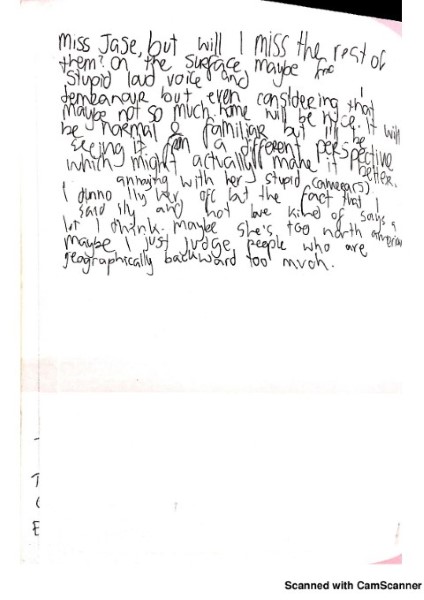 miss Jase, but will I miss the rest of
them? On the surface maybe
stupid loud voice and
demeanour but even considering that
maybe not so much home will be nice. it will
be normal & familiar but I'll be
seeing it from a different perspective
which might actually make it better.
annoying with her stupid camera(s)
I dunno ily her ofc but the fact that I
said ily and not love kind of says a
lot I think. maybe she's too north american
maybe I just judge people who are
geographically backward too much.
T
E
Scanned with CamScanner